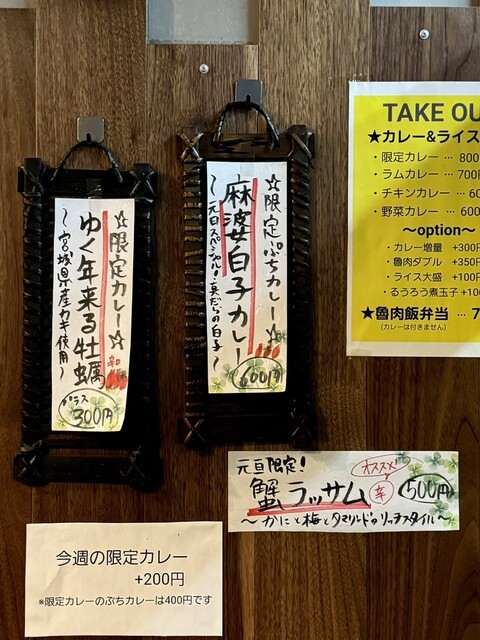 ☆限定カレー☆
ゆく年来る牡蠣
辛
〜宮城県産カキ使用〜
プラス
300円
☆限定ぷちカレー☆
麻婆白子カレー
〜元旦スペシャル!真だらの白子〜
600円
TAKE OU
★カレー&ライス
・限定カレー … 800
・ラムカレー … 700円
・チキンカレー … 60
・野菜カレー … 600
〜option〜
・カレー増量 +300円
・魯肉ダブル +350円
・ライス大盛 +100円
・るうろう煮玉子 +100
★魯肉飯弁当 … 7
(カレーは付きません)
元旦限定!
オススメ
蟹ラッサム 辛 500円
〜かにと梅とタマリンドのリッチスタイル〜
今週の限定カレー
+200円
※限定カレーのぷちカレーは400円です